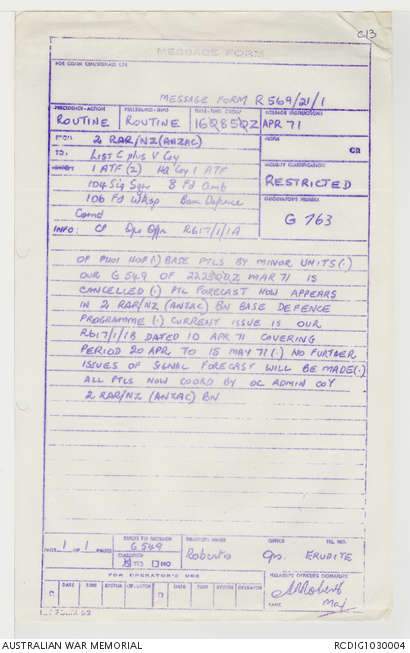 C13
MESSAGE FORM
MESSAGE FORM R569/21/1
PRECEDENCE-ACTION
DATE-TIME GROUP
MESSAGE INSTRUCTIONS
ROUTINE ROUTINE 160850Z APR 71
FROM: 2 RAR/NZ (ANZAC)
GR
TO: List C plus V Coy
SECURITY CLASSIFICATION
1 ATF (2) HQ Coy 1 ATF
RESTRICTED
104 Sig Sqn 8 Fd Amb
ORIGINATOR'S NUMBER
106 Fd Wksp Base Defence
G 763
Comd
INFO: CP Ops Offr R617/1/1A
OP PHOI HOP (.) BASE PTLS BY MINOR UNITS (.)
OUR G 549 OF 222300Z MAR 71 IS
CANCELLED (.) PTL FORECAST NOW APPEARS
IN 2 RAR/NZ (ANZAC) BN BASE DEFENCE
PROGRAMME (.) CURRENT ISSUE IS OUR
R617/1/1B DATED 10 APR 71 COVERING
PERIOD 20 APR TO 15 MAY 71 (.) NO FURTHER
ISSUES OF SIGNAL FORECAST WILL BE MADE (.)
ALL PTLS NOW COORD BY OC ADMIN COY
2 RAR/NZ (ANZAC) BN
PAGE 1 OF 1 PAGES
REFERS TO MESSAGE
G 549
CLASSIFIED
YES NO
DRAFTER'S NAME
Roberts
OFFICE
Ops
TEL. NO.
ERUDITE
FOR OPERATOR'S USE
RELEASING OFFICER'S SIGNATURE
DATE TIME SYSTEM OPERATOR DATE TIME SYSTEM OPERATOR
Maj
AUSTRALIAN WAR MEMORIAL
RCDIG1030004